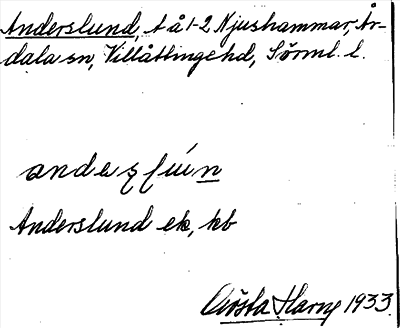 Anderslund, t å 1-2 Njushammar, Är-
dala sn, Villåttinge hd, Sörml. l.
Anderslund ek, kb
Gösta Harng 1933.